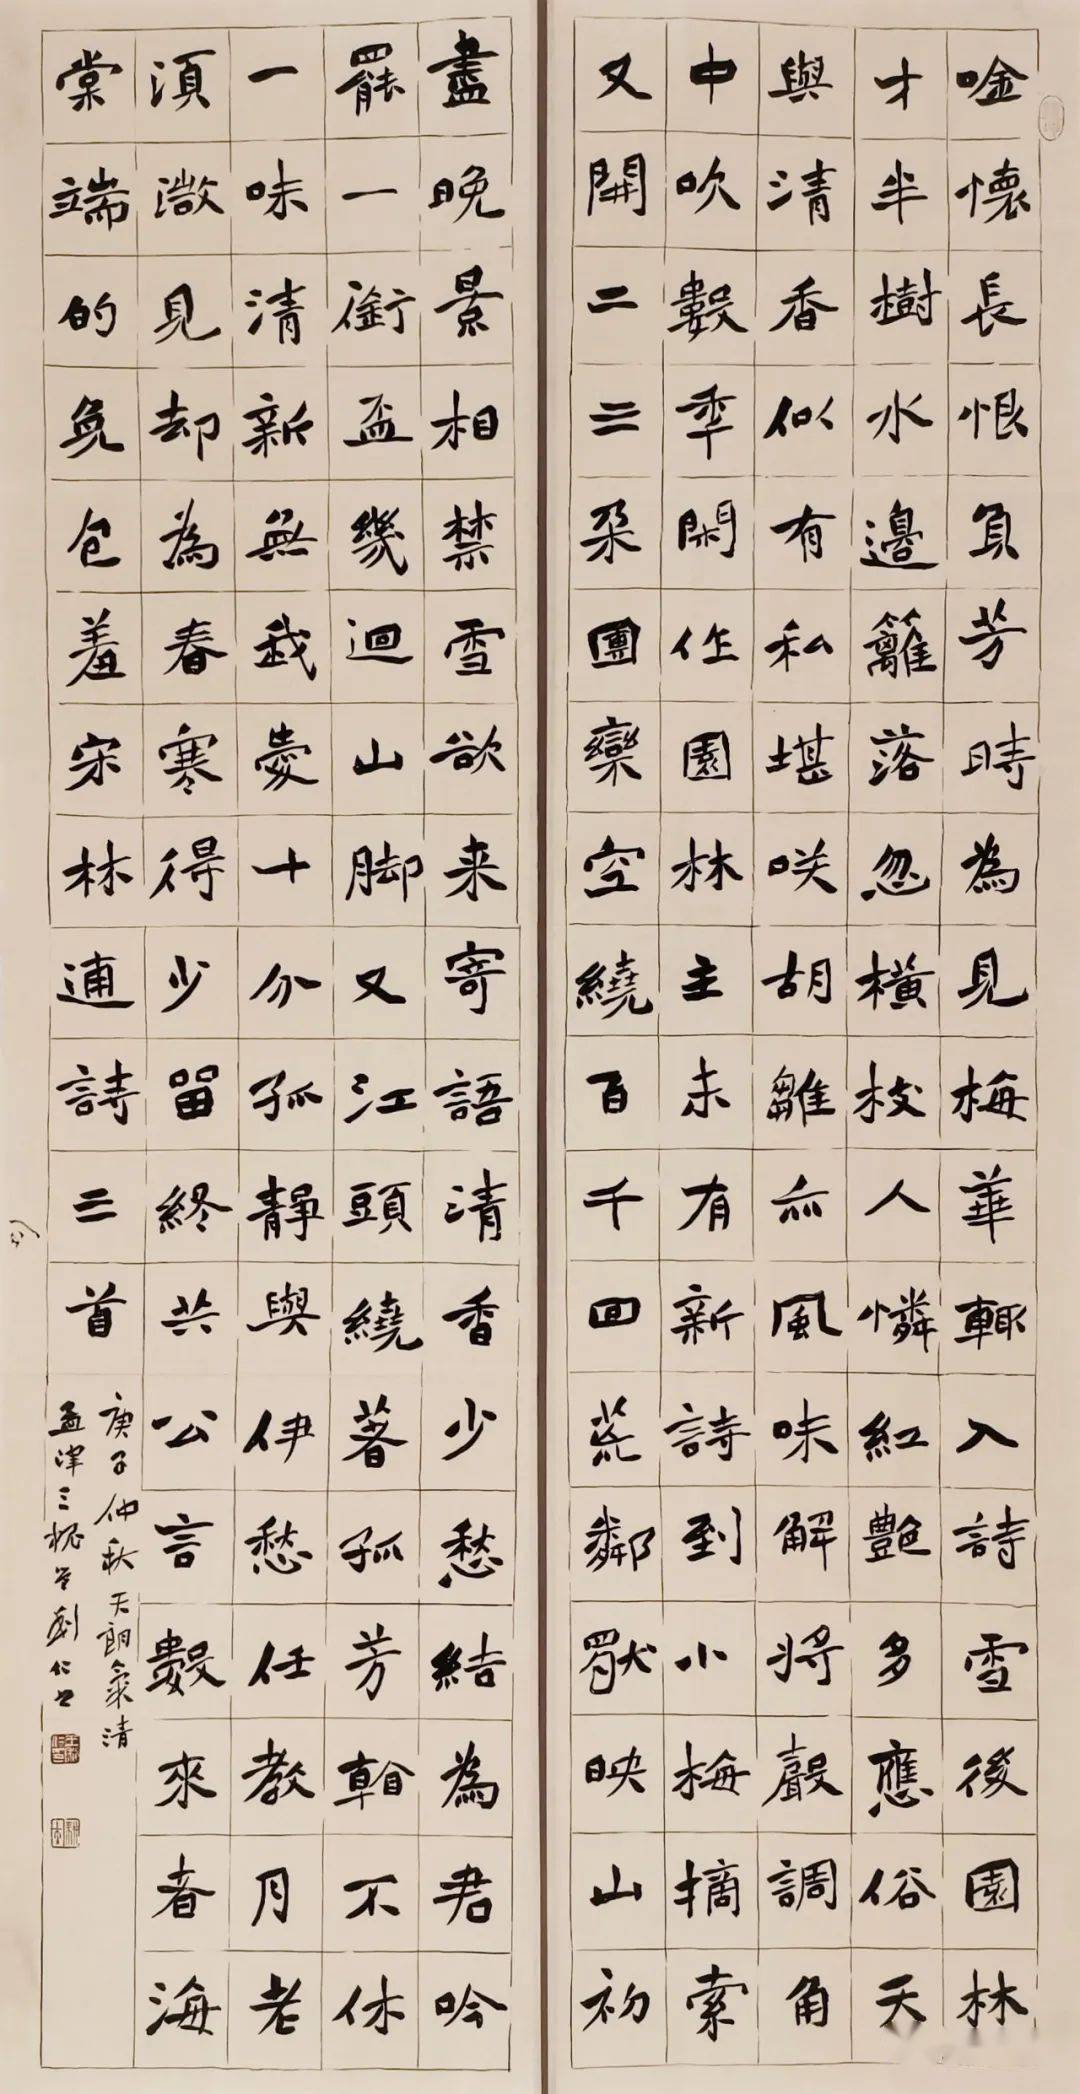 唫懷長恨負芳時為見梅華輒入詩雪後園林
才半樹水邊籬落忽橫枝人憐紅艷多應俗天
與清香似有私堪咲胡雛亦風味解將聲調角
中吹數年閑作園林主未有新詩到小梅摘索
又開三兩朵團欒空繞百千回荒鄰獸映山初
盡晚景相禁雪欲来寄語清香少愁結為君吟
罷一銜盃幾迴山脚又江頭繞著孤芳看不休
一味清新無我愛十分孤靜與伊愁任教月老
須微見却為春寒得少留終共公言數來者海
棠端的免包羞宋林逋詩三首
庚子仲秋天朗氣清
孟津三槐堂劉仁